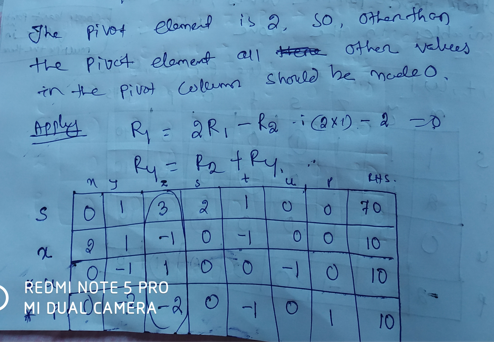 The pivot element is 2, so, other than
the pivot element all other values
in the pivot column should be made 0.
Apply R1 = 2R1 - R2 ∵ (2×1) - 2 = 0
R4 = R2 + R4.
x y z s t u P RHS.
s 0 1 3 2 1 0 0 70
x 2 1 -1 0 -1 0 0 10
0 -1 1 0 0 -1 0 10
0 -2 0 -1 0 1 10
REDMI NOTE 5 PRO
MI DUAL CAMERA